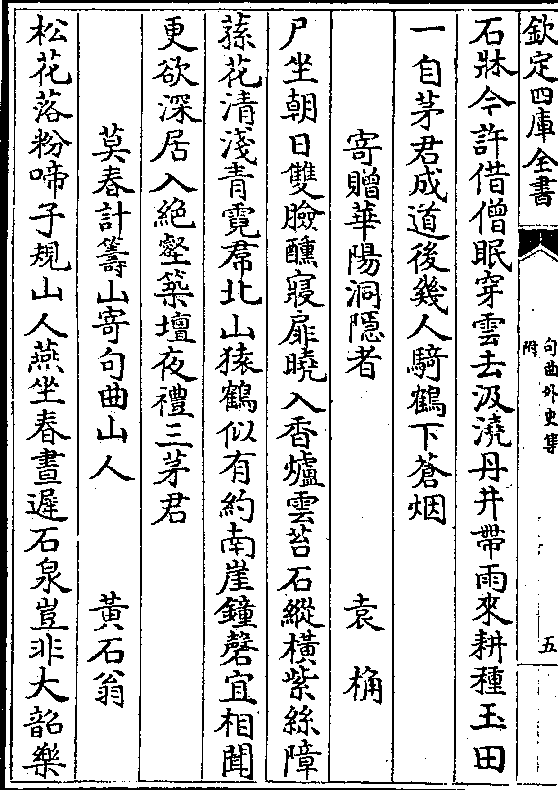 欽定四庫全書
句曲外史集
附
五
石牀今許借僧眠穿雲去汲澆丹井帶雨來耕種玉田
一自茅君成道後幾人騎鶴下蒼烟
寄贈華陽洞隱者 袁桷
尸坐朝日雙臉醺寢扉曉入香爐雲苔石縱橫紫絲障
蓀花清淺青霓帬北山猿鶴似有約南崖鐘磬宜相聞
更欲深居入絕壑築壇夜禮三茅君
莫春計籌山寄句曲山人 黃石翁
松花落粉啼子規山人燕坐春晝遲石泉豈非大韶樂